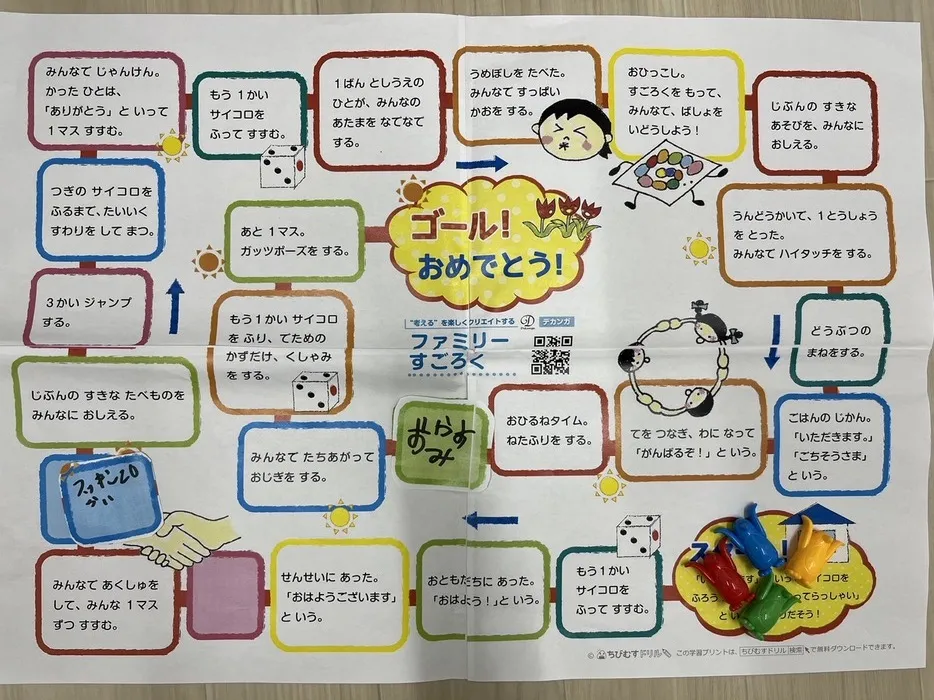 みんなで じゃんけん。
かった ひとは、
「ありがとう」と いって
1マス すすむ。
もう 1かい
サイコロを
ふって すすむ。
1ばん としうえの
ひとが、みんなの
あたまを なでなで
する。
うめぼしを たべた。
みんなで すっぱい
かおを する。
おひっこし。
すごろくを もって、
みんなで、ばしょを
いどうしよう!
じぶんの すきな
あそびを、みんなに
おしえる。
つぎの サイコロを
ふるまで、たいいく
すわりを して まつ。
あと 1マス。
ガッツポーズを する。
ゴール!
おめでとう!
うんどうかいで、1とうしょう
を とった。
みんなで ハイタッチを する。
3かい ジャンプ
する。
もう1かい サイコロ
を ふり、でための
かずだけ、くしゃみ
を する。
"考える"を楽しくクリエイトする
デカンガ
ファミリー
すごろく
どうぶつの
まねをする。
じぶんの すきな たべものを
みんなに おしえる。
みんなで たちあがって
おじぎを する。
おひるねタイム。
ねたふりを する。
てを つなぎ、わに なって
「がんばるぞ!」と いう。
ごはんの じかん。
「いただきます。」
「ごちそうさま」
と いう。
みんなで あくしゅを
して、みんな 1マス
ずつ すすむ。
せんせいに あった。
「おはようございます」
と いう。
おともだちに あった。
「おはよう!」と いう。
もう1かい
サイコロを
ふって すすむ。
ス
「い
いう
イコロを
ふろう
ってらっしゃい」
と い
だそう!
© ちびむすドリル この学習プリントは、ちびむすドリル 検索 で無料ダウンロードできます。